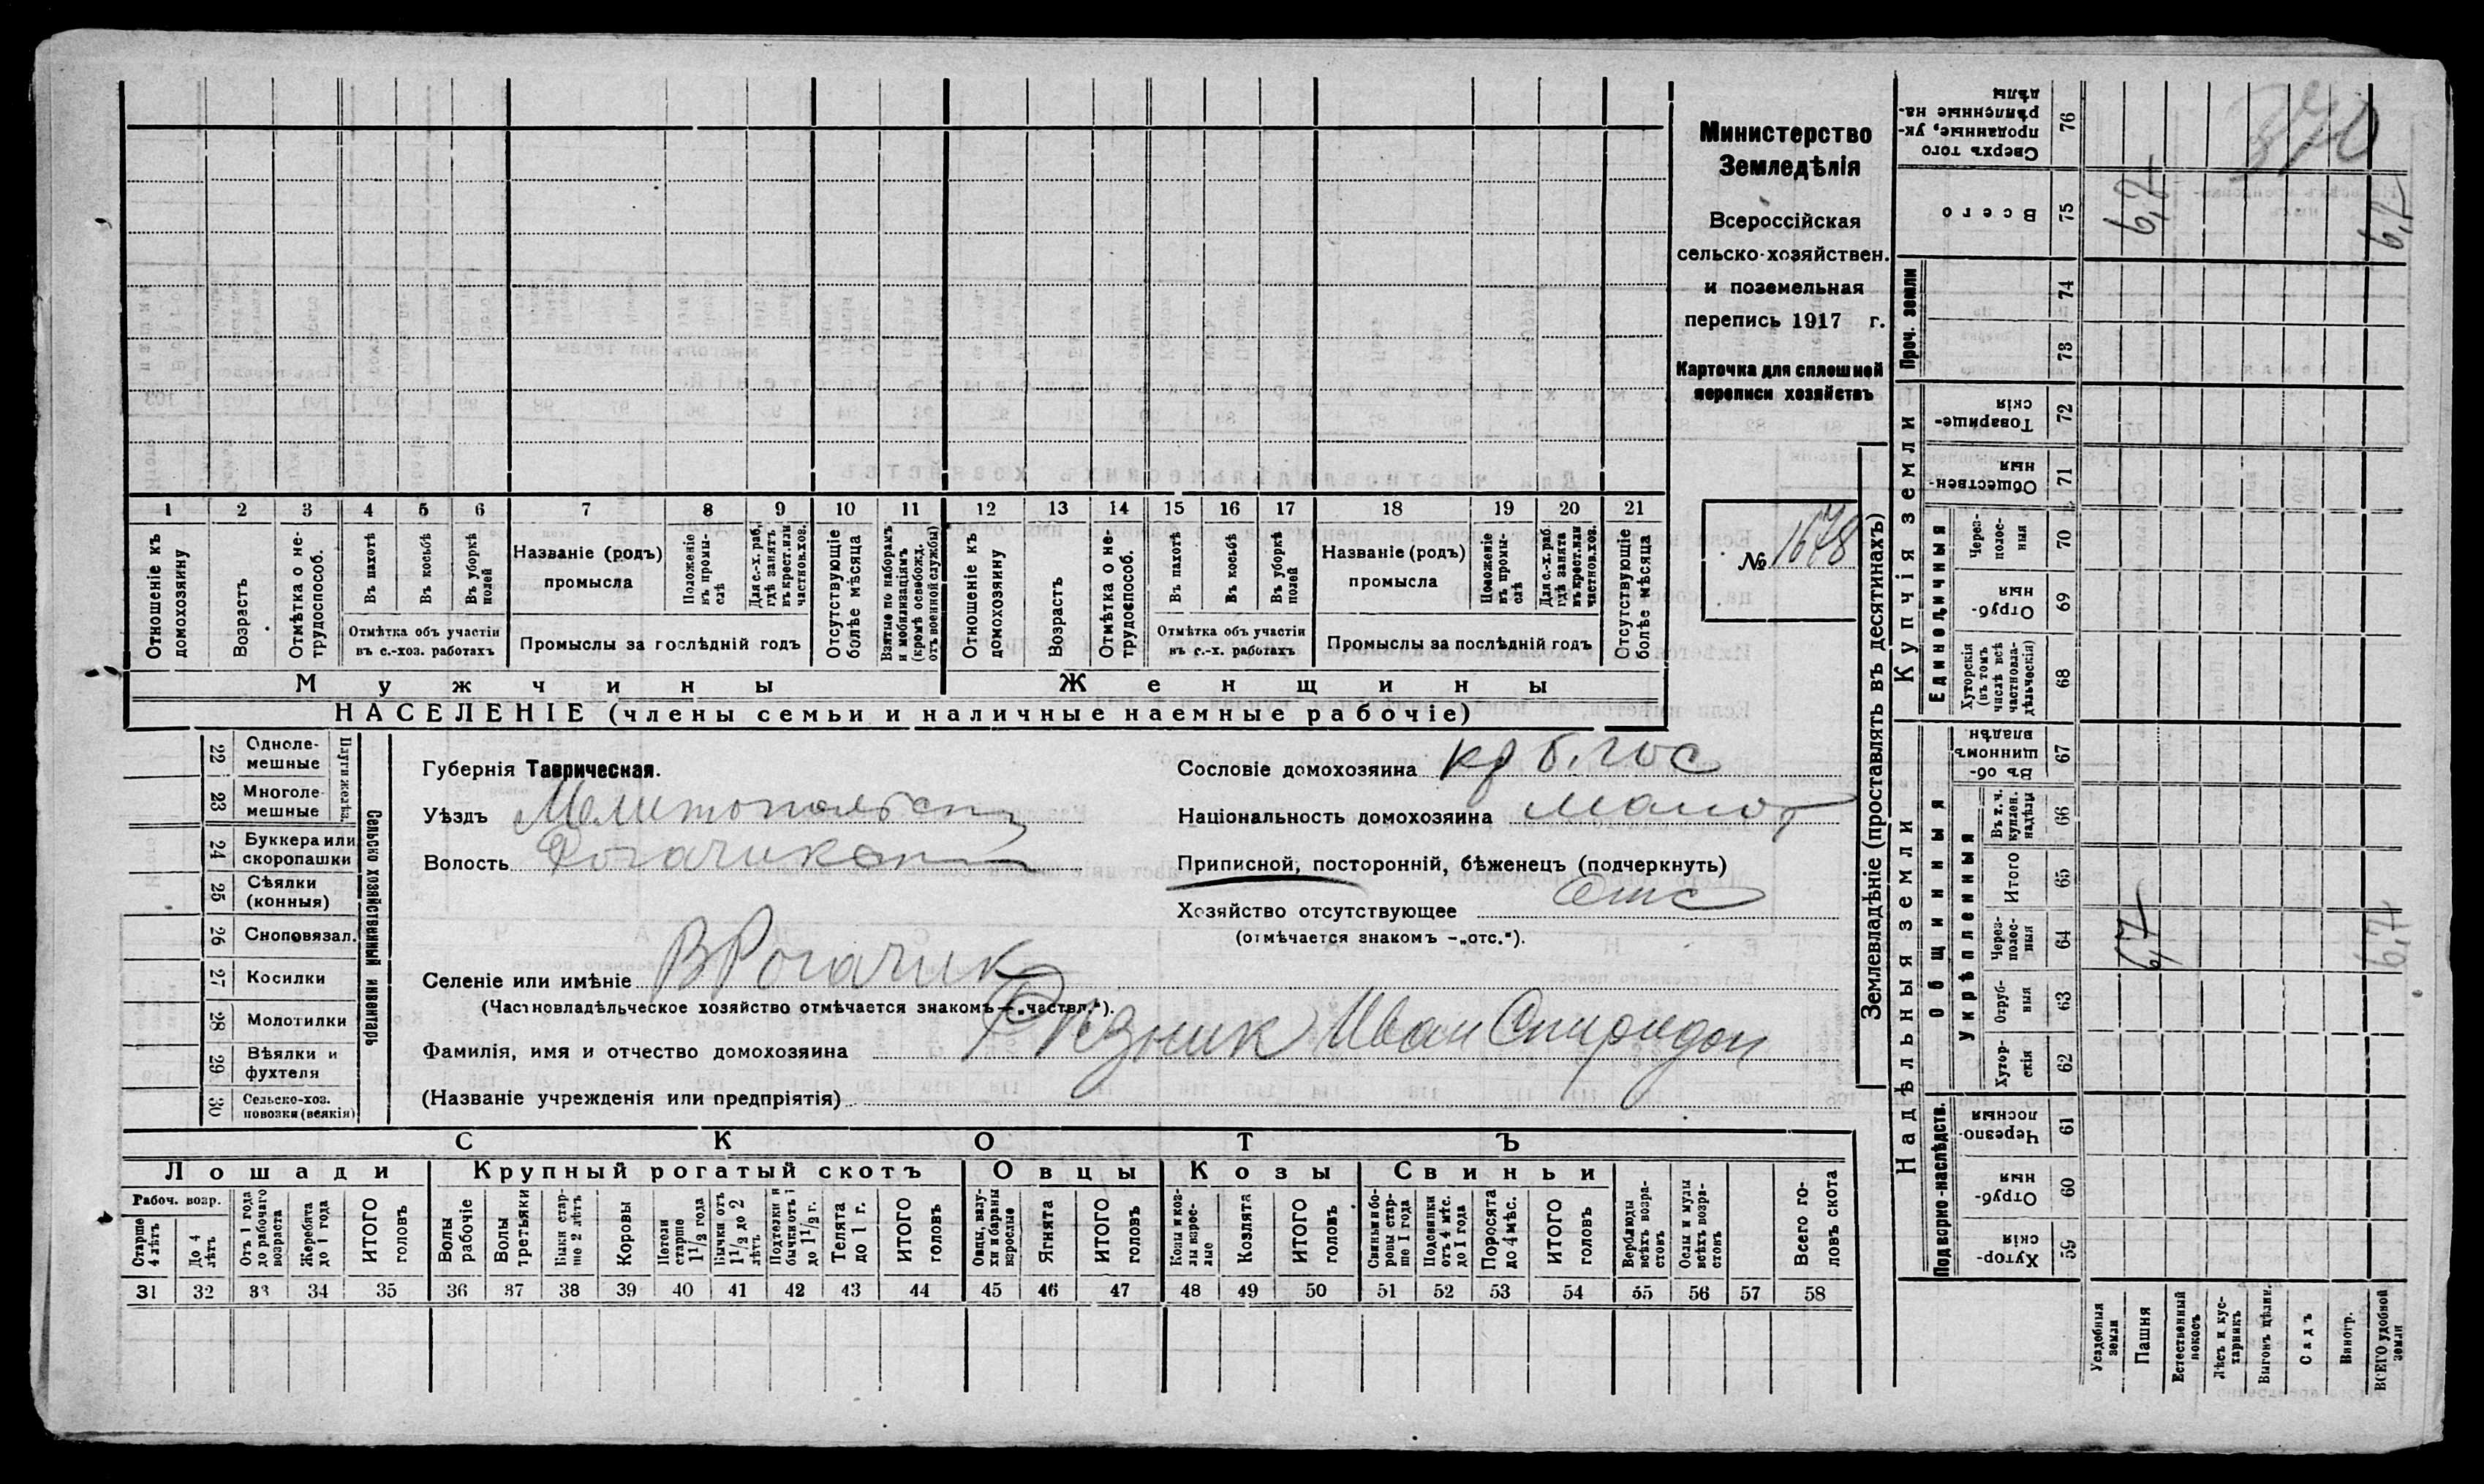 Министерство
Земледѣлія
Всероссійская
сельско-хозяйствен.
и поземельная
перепись 1917 г.
Карточка для сплошной
переписи хозяйствъ
№ 1678
1 2 3 4 5 6 7 8 9 10 11 12 13 14 15 16 17 18 19 20 21
Отношеніе къ домохозяину
Возрастъ
Отмѣтка о не-трудоспособ.
Въ пахотѣ
Въ косьбѣ
Въ уборкѣ полей
Отмѣтка объ участіи въ с.-хоз. работахъ
Названіе (родъ) промысла
Положеніе въ промы-слѣ
Для с.-х. раб. гдѣ занятъ въ крест. или частнов. хоз.
Промыслы за послѣдній годъ
Отсутствующіе болѣе мѣсяца
Взятые по наборамъ и мобилизаціямъ (кромѣ освобожд. отъ военной службы)
Отношеніе къ домохозяину
Возрастъ
Отмѣтка о не-трудоспособ.
Въ пахотѣ
Въ косьбѣ
Въ уборкѣ полей
Отмѣтка объ участіи въ с.-х. работахъ
Названіе (родъ) промысла
Положеніе въ промы-слѣ
Для с.-х. раб. гдѣ занята въ крест. или частнов. хоз.
Промыслы за послѣдній годъ
Отсутствующіе болѣе мѣсяца
Мужчины
Женщины
НАСЕЛЕНІЕ (члены семьи и наличные наемные рабочіе)
22 Однолемешные
23 Многолемешные
Плуги желѣз.
24 Буккера или скоропашки
25 Сѣялки (конныя)
26 Сноповязал.
27 Косилки
28 Молотилки
29 Вѣялки и фухтеля
30 Сельско-хоз. повозки (всякія)
Сельско хозяйственный инвентарь
Губернія Таврическая.
Уѣздъ Мелитопольск
Волость Рогачикск
Селеніе или имѣніе В Рогачик
(Частновладѣльческое хозяйство отмѣчается знакомъ—„частвл.“).
Фамилія, имя и отчество домохозяина Рѣзник Иван Спиридон
(Названіе учрежденія или предпріятія)
Сословіе домохозяина кр б. гос
Національность домохозяина малор
Приписной, посторонній, бѣженецъ (подчеркнуть)
Хозяйство отсутствующее отс
(отмѣчается знакомъ -„отс.“).
СКОТЪ
Лошади
Крупный рогатый скотъ
Овцы
Козы
Свиньи
Рабоч. возр.
Старше 4 лѣтъ
До 4 лѣтъ
Отъ 1 года до рабочаго возраста
Жеребята до 1 года
ИТОГО головъ
Волы рабочіе
Волы третьяки
Быки стар-ше 2 лѣтъ
Коровы
Нетели старше 1 1/2 года
Бычки отъ 1 1/2 до 2 лѣтъ
Подтелки и бычки отъ 1 до 1 1/2 г.
Телята до 1 г.
ИТОГО головъ
Овцы, валу-хи и бараны взрослые
Ягнята
ИТОГО головъ
Козы и коз-лы взрос-лые
Козлята
ИТОГО головъ
Свиньи и бо-ровы стар-ше 1 года
Подсвинки отъ 4 мѣс. до 1 года
Поросята до 4 мѣс.
ИТОГО головъ
Верблюды всѣхъ возра-стовъ
Ослы и мулы всѣхъ возра-стовъ
Всего го-ловъ скота
31 32 33 34 35 36 37 38 39 40 41 42 43 44 45 46 47 48 49 50 51 52 53 54 55 56 57 58
Землевладѣніе (проставлять въ десятинахъ)
Купчія земли
Надѣльныя земли
Проч. земли
Единоличныя
Общинныя
Укрѣпленныя
Подворно-наслѣдств.
Сверхъ того проданные, ук-рѣпленные на-дѣлы 76
370
Всего 75 6,7 6,7
74
73
Товарище-скія 72
Обществен-ныя 71
Через-полос-ныя 70
Отруб-ныя 69
Хуторскія (въ томъ числѣ всѣ частновла-дѣльческія) 68
Въ об-щинномъ владѣн. 67
Въ т. ч. куплен. надѣлы 66
Итого 65
Через-полос-ныя 64 6,7 6,7
Отруб-ныя 63
Хутор-скія 62
Черезпо-лосныя 61
Отруб-ныя 60
Хутор-скія 59
Усадебныя земли
Пашня
Естественный покосъ
Лѣсъ и кус-тарникъ
Выгонъ цѣлин.
Садъ
Виногр.
ВСЕГО удобной земли